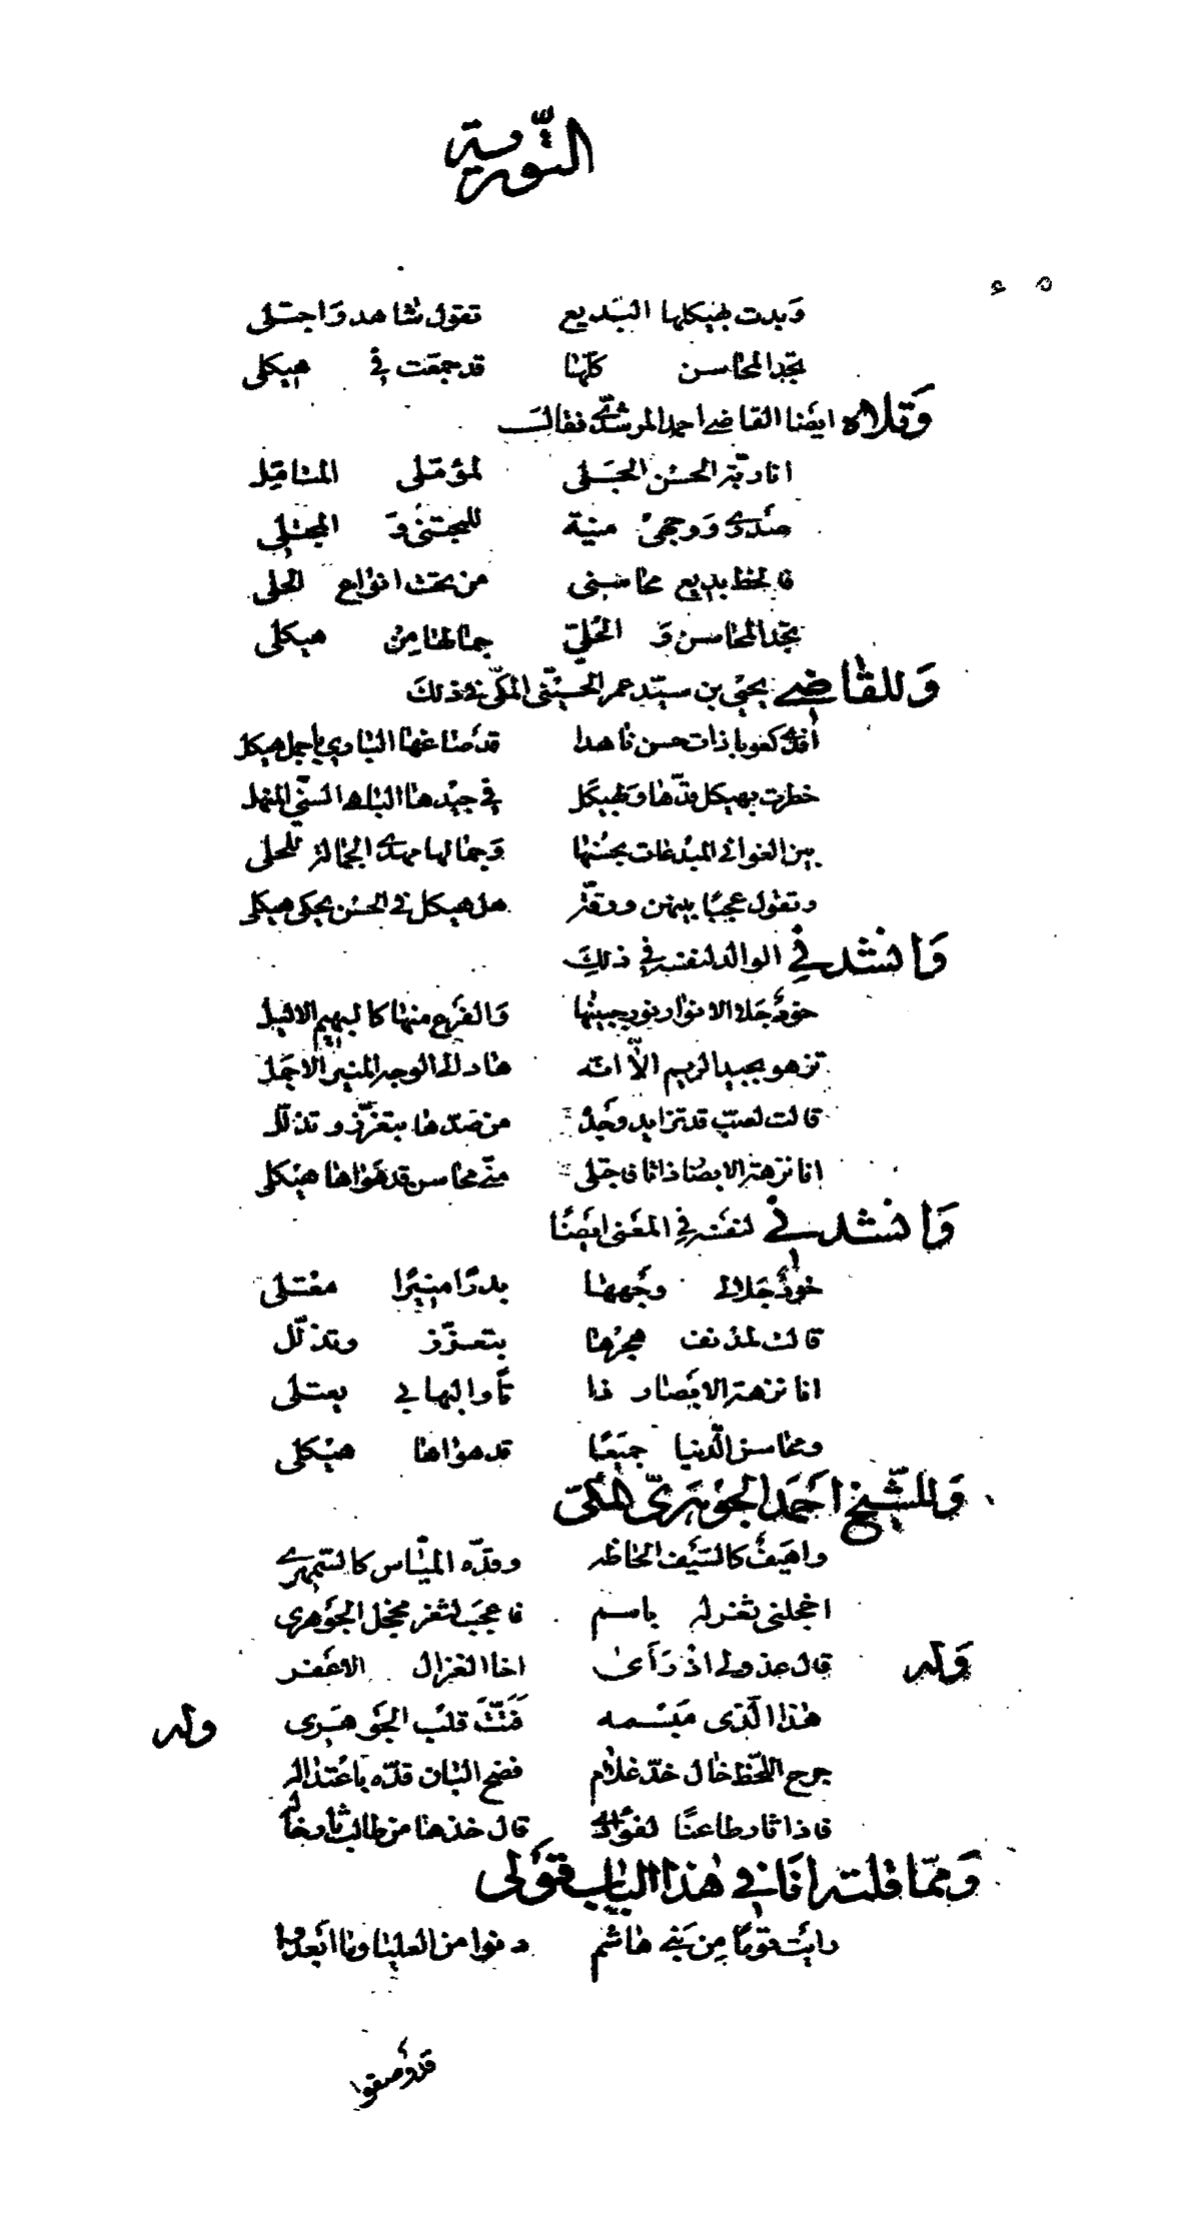 التورية
وبدت بهيكلها البديع تقول شاهد واجتلى
تجد المحاسن كلها قد جمعت في هيكلى
وتلاه ايضا القاضي احمد المرشدي فقال
انا ربة الحسن الجلى لمؤملى المتأمل
صدرى ووجهى منية للمجتنى والمجتلى
فالحظ بديع محاسنى من تحت انواع الحلى
تجد المحاسن والحلي جمالها من هيكلى
وللقاضي يحيى بن سيد عمر الحسينى المكى في ذلك
افدى كعوبا ذات حسن ناهدا قد صاغها البارى باجمل هيكل
خطرت بهيكل قدها وبهيكل في جيدها الباهى السنى المنهل
بين الغوانى المبدعات بحسنها وجمالها للحلى
وتقول عجبا بينهن ورقة هل هيكل في الحسن يحكى هيكلى
وانشدني الوالد لنفسه في ذلك
خود جلا الانوار نور جبينها والفرع منها كالبهيم الاليل
تزهو بجيد الريم الا انه هاد الى الوجه المنير الاجمل
قالت لصب قد تزايد وجده من صدها بتعزز وتذلل
انا نزهة الابصار ذاتا فاجتلى منى محاسن قد حواها هيكلى
وانشدني لنفسه في المعنى ايضا
خود جلا لى وجهها بدرا منيرا مقتلى
قالت لمدنف هجرها بتعزز وتذلل
انا نزهة الابصار ذا تا والبها بي يعتلى
ومحاسن الدنيا جميعا قد حواها هيكلى
وللشيخ احمد الجوهرى المكى
واهيف كالسيف الحاظه وقده المياس كالسمهري
اخجلنى بثغر له باسم فاعجب لثغر مخجل الجوهرى
وله قال عذولي اذ رأى اخا الغزال الاعفر
هذا الذى مبسمه فتت قلب الجوهرى وله
جرح اللحظ خال خد غلام فضح البان قده باعتداله
فاذا ثار طاعنا لفؤادى قال خذها من طالب ثار خاله
ومما قلته انا في هذا الباب قولى
رايت قوما من بني هاشم دنوا من العليا وما ابعدوا
قد وصفوا